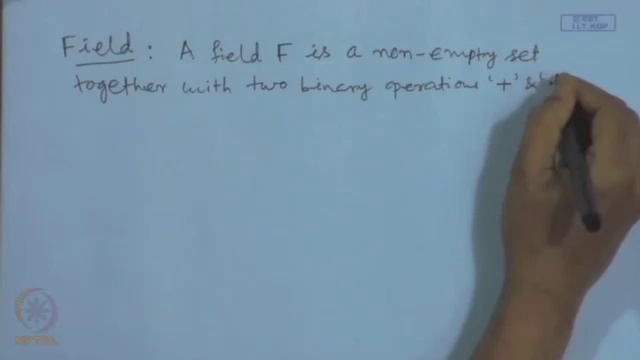 Field : A field F is a non-empty set
together with two binary operations '+' & '
NPTEL